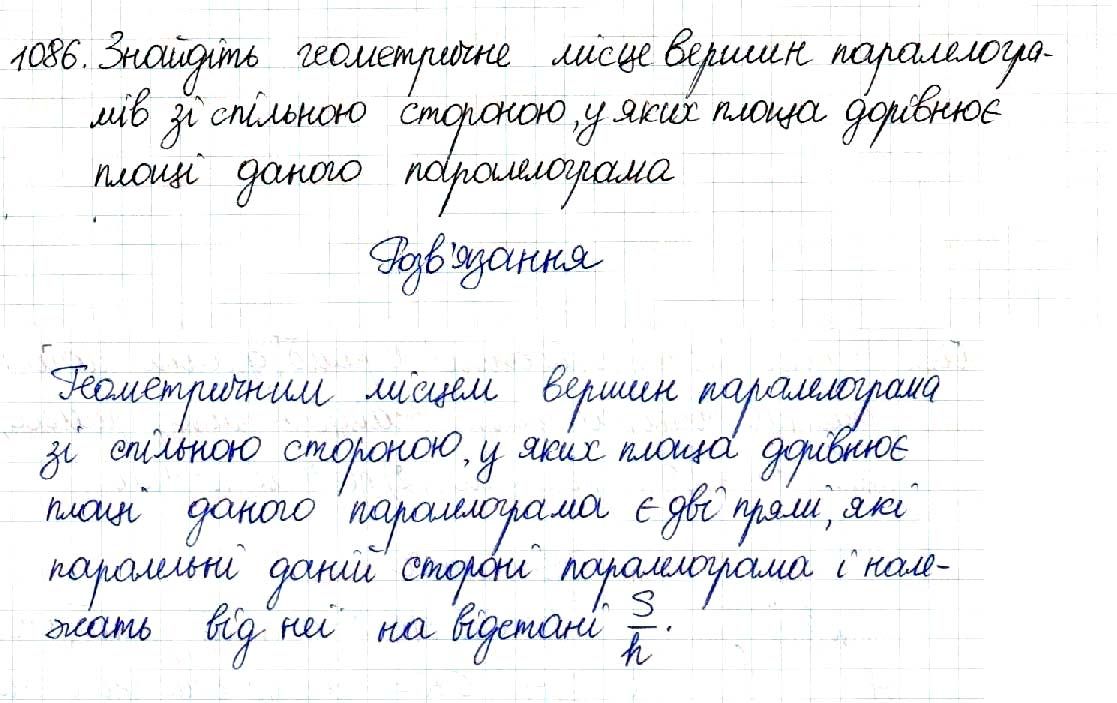 1086. Знайдіть геометричне місце вершин паралелогра-
мів зі спільною стороною, у яких площа дорівнює
площі даного паралелограма
Розв'язання
Геометричним місцем вершин паралелограма
зі спільною стороною, у яких площа дорівнює
площі даного паралелограма є дві прямі, які
паралельні даній стороні паралелограма і нале-
жать від неї на відстані S/h.